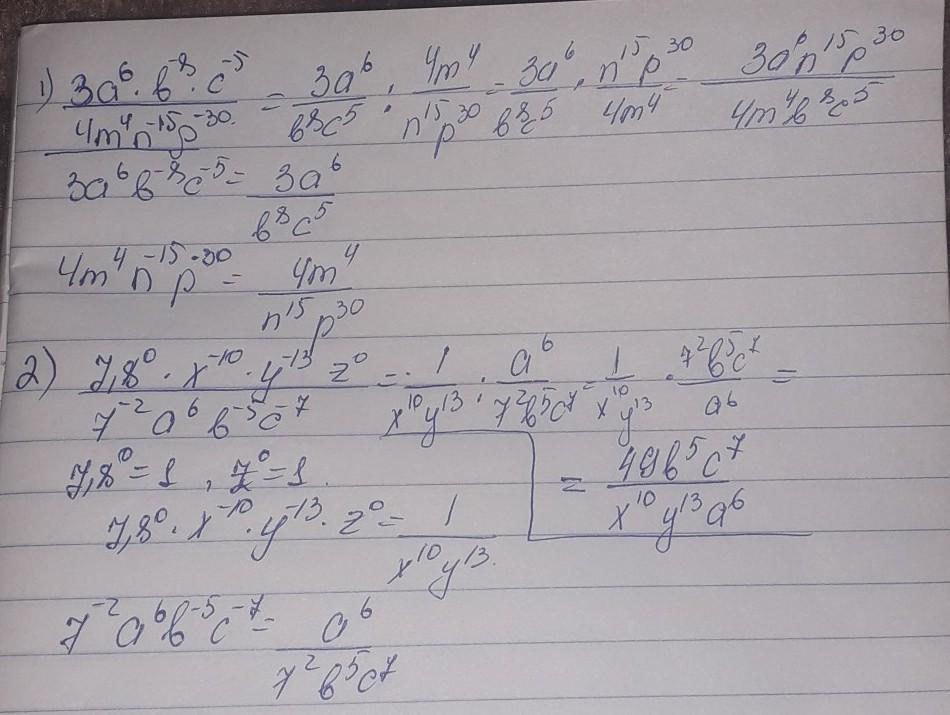 1) (3a⁶·b⁻⁸·c⁻⁵)/(4m⁴n⁻¹⁵p⁻³⁰) = 3a⁶/(b⁸c⁵) : 4m⁴/(n¹⁵p³⁰) = 3a⁶/(b⁸c⁵) · n¹⁵p³⁰/(4m⁴) = 3a⁶n¹⁵p³⁰/(4m⁴b⁸c⁵)
3a⁶b⁻⁸c⁻⁵ = 3a⁶/(b⁸c⁵)
4m⁴n⁻¹⁵p⁻³⁰ = 4m⁴/(n¹⁵p³⁰)
2) (7,8⁰·x⁻¹⁰·y⁻¹³ z⁰)/(7⁻²a⁶b⁻⁵c⁻⁷) = 1/(x¹⁰y¹³) : a⁶/(7²b⁵c⁷) = 1/(x¹⁰y¹³) · 7²b⁵c⁷/a⁶ =
= 49b⁵c⁷/(x¹⁰y¹³a⁶)
7,8⁰ = 1, z⁰ = 1.
7,8⁰·x⁻¹⁰·y⁻¹³·z⁰ = 1/(x¹⁰y¹³).
7⁻²a⁶b⁻⁵c⁻⁷ = a⁶/(7²b⁵c⁷)